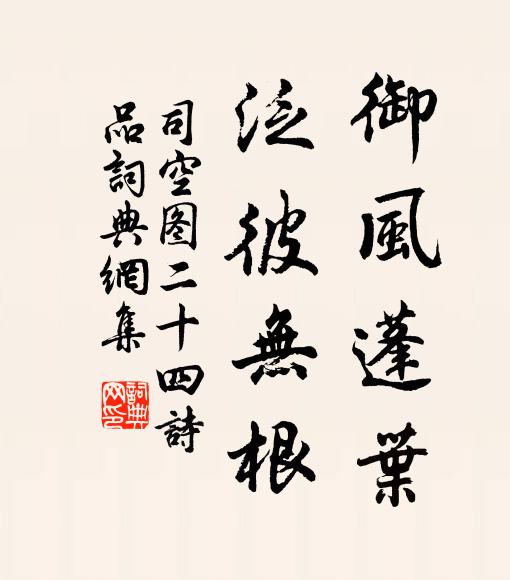 御風蓬葉
泛彼無根
司空图二十四詩
品詞典網集
詞典网印